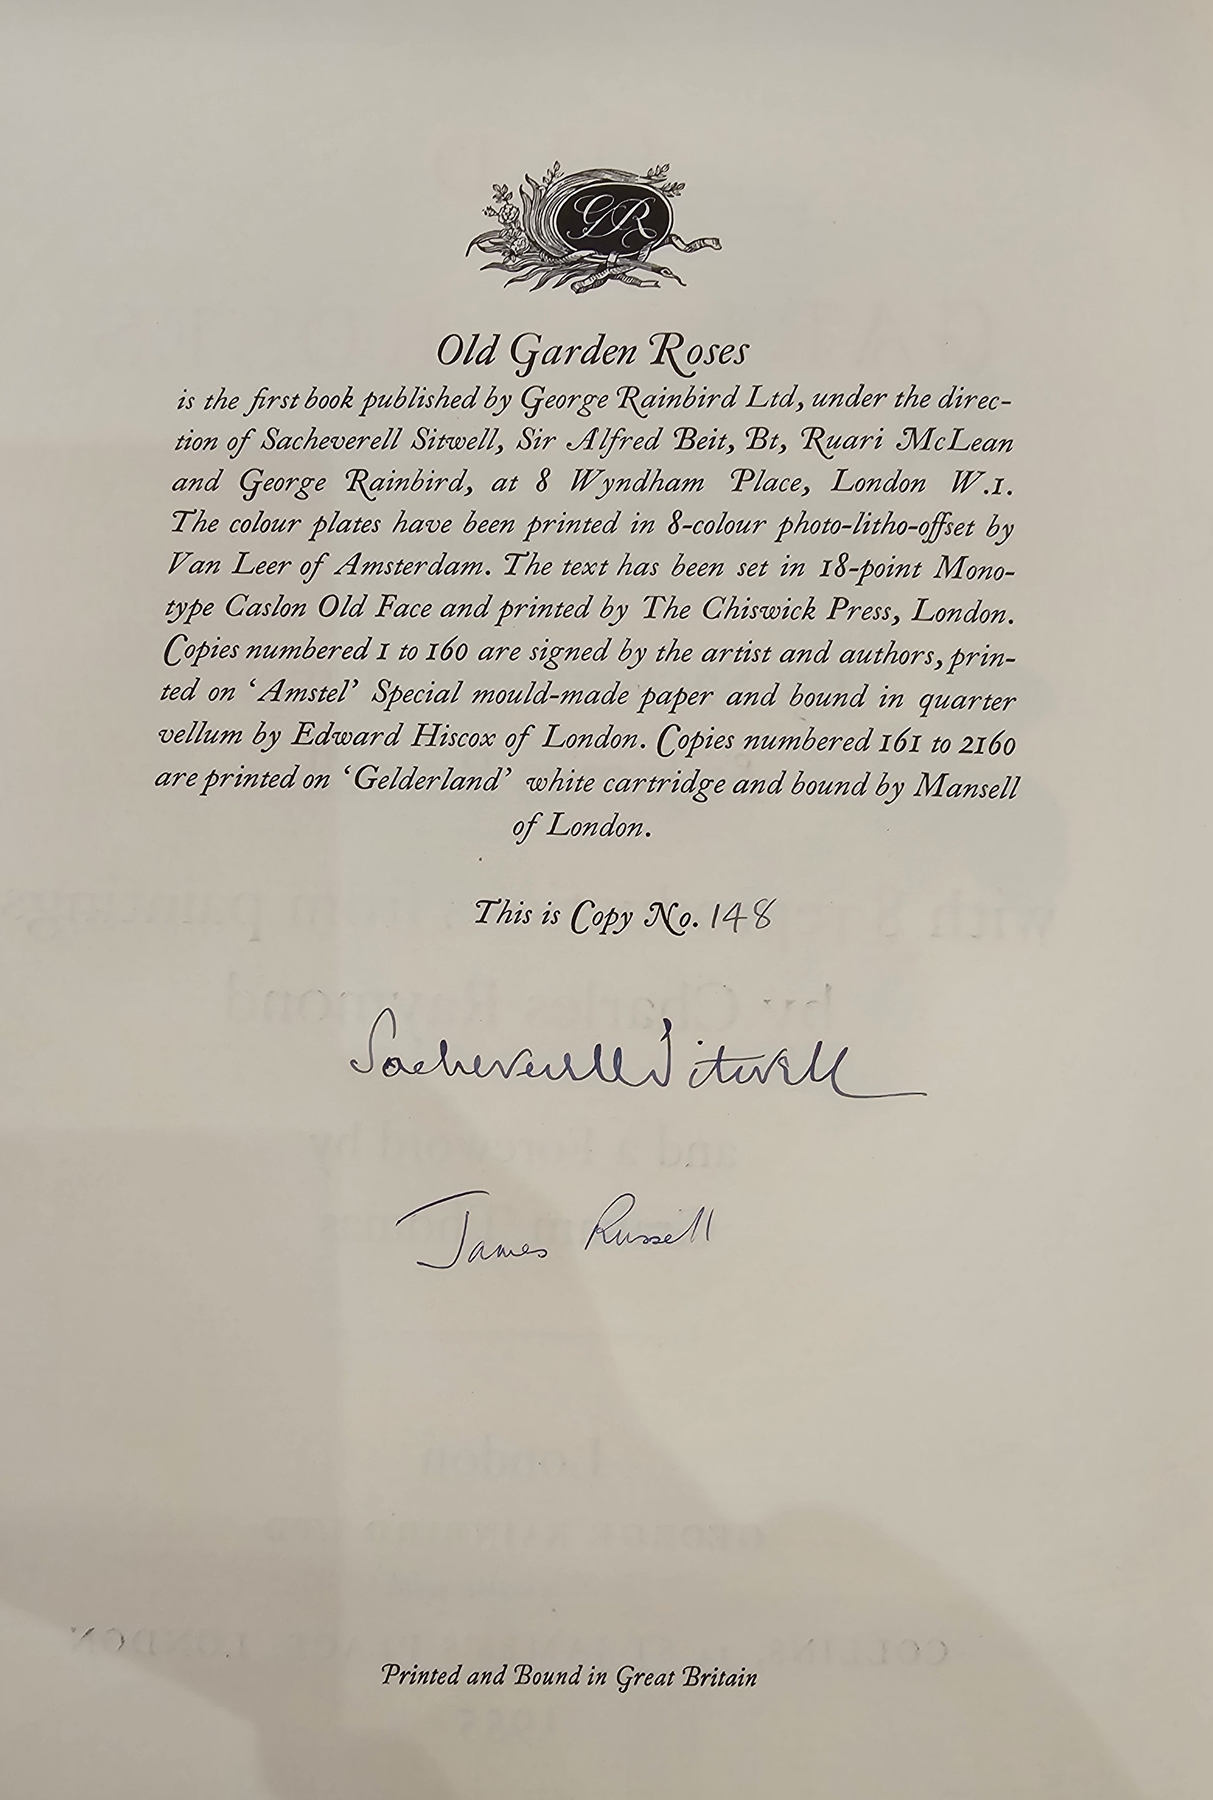 GR
Old Garden Roses
is the first book published by George Rainbird Ltd, under the direc-
tion of Sacheverell Sitwell, Sir Alfred Beit, Bt, Ruari McLean
and George Rainbird, at 8 Wyndham Place, London W.1.
The colour plates have been printed in 8-colour photo-litho-offset by
Van Leer of Amsterdam. The text has been set in 18-point Mono-
type Caslon Old Face and printed by The Chiswick Press, London.
Copies numbered 1 to 160 are signed by the artist and authors, prin-
ted on ‘Amstel’ Special mould-made paper and bound in quarter
vellum by Edward Hiscox of London. Copies numbered 161 to 2160
are printed on ‘Gelderland’ white cartridge and bound by Mansell
of London.
This is Copy No. 148
Sacheverell Sitwell
James Russell
Printed and Bound in Great Britain